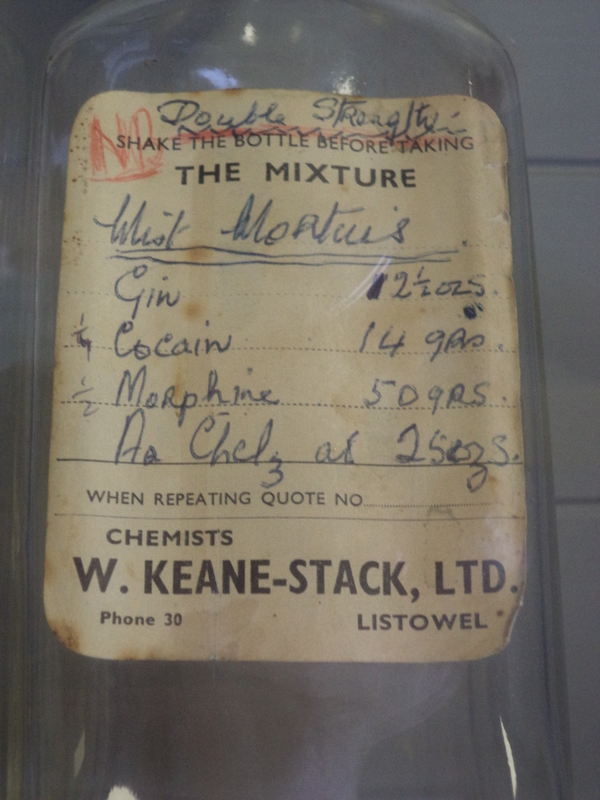 Double Strength
NP.
SHAKE THE BOTTLE BEFORE TAKING
THE MIXTURE
Mist Mortuis.
Gin 12½ozs.
¼ Cocain 14 grs.
½ Morphine 50 grs.
Aq Chlf ad 25ozs.
WHEN REPEATING QUOTE NO
CHEMISTS
W. KEANE-STACK, LTD.
Phone 30 LISTOWEL